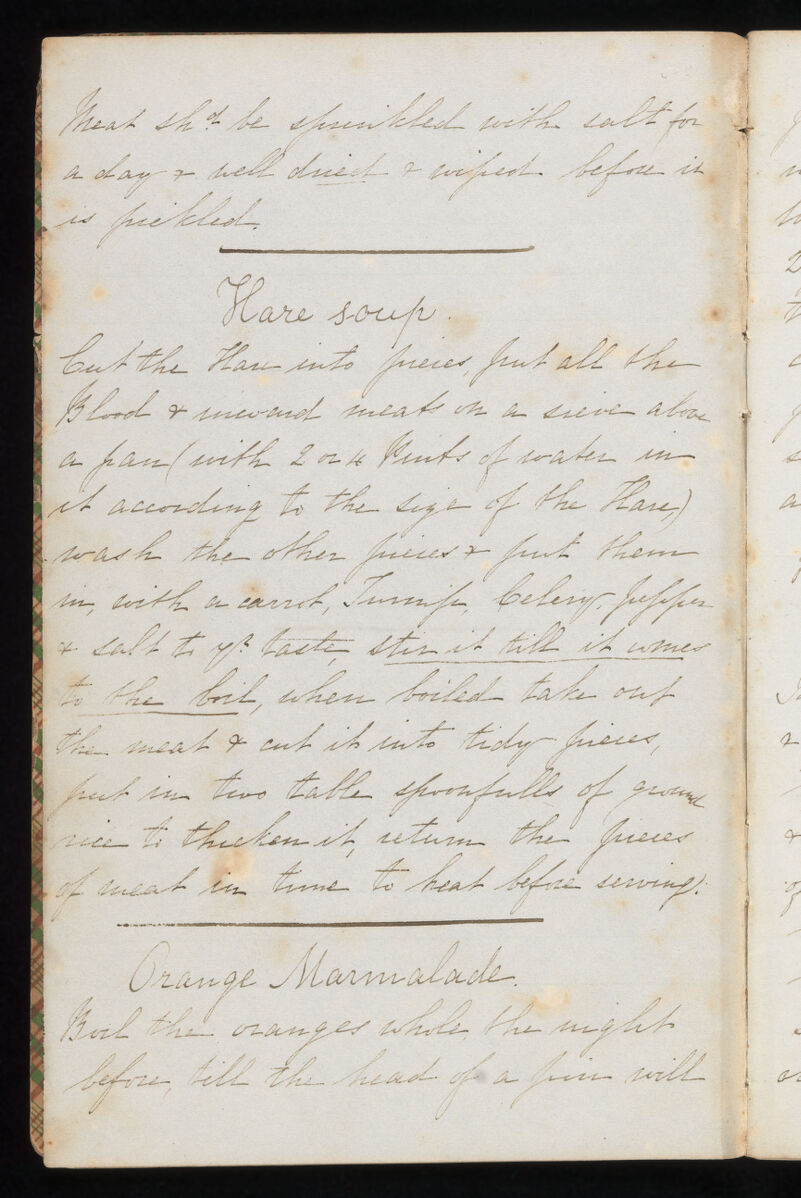 Meat shd be sprinkled with salt for
a day & well dried & wiped before it
is pickled.
Hare soup.
Cut the Hare into pieces, put all the
Blood & inward meats on a sieve above
a pan (with 2 or 4 Pints of water in
it according to the size of the Hare,)
wash the other pieces & put them
in, with a carrot, Turnip, Celery, Pepper
& salt to yr taste, stir it till it comes
to the boil, when boiled take out
the meat & cut it into tidy pieces,
put in two table spoonfulls of ground
rice to thicken it, return the pieces
of meat in time to heat before serving.
Orange Marmalade.
Boil the oranges whole, the night
before, till the head of a pin will